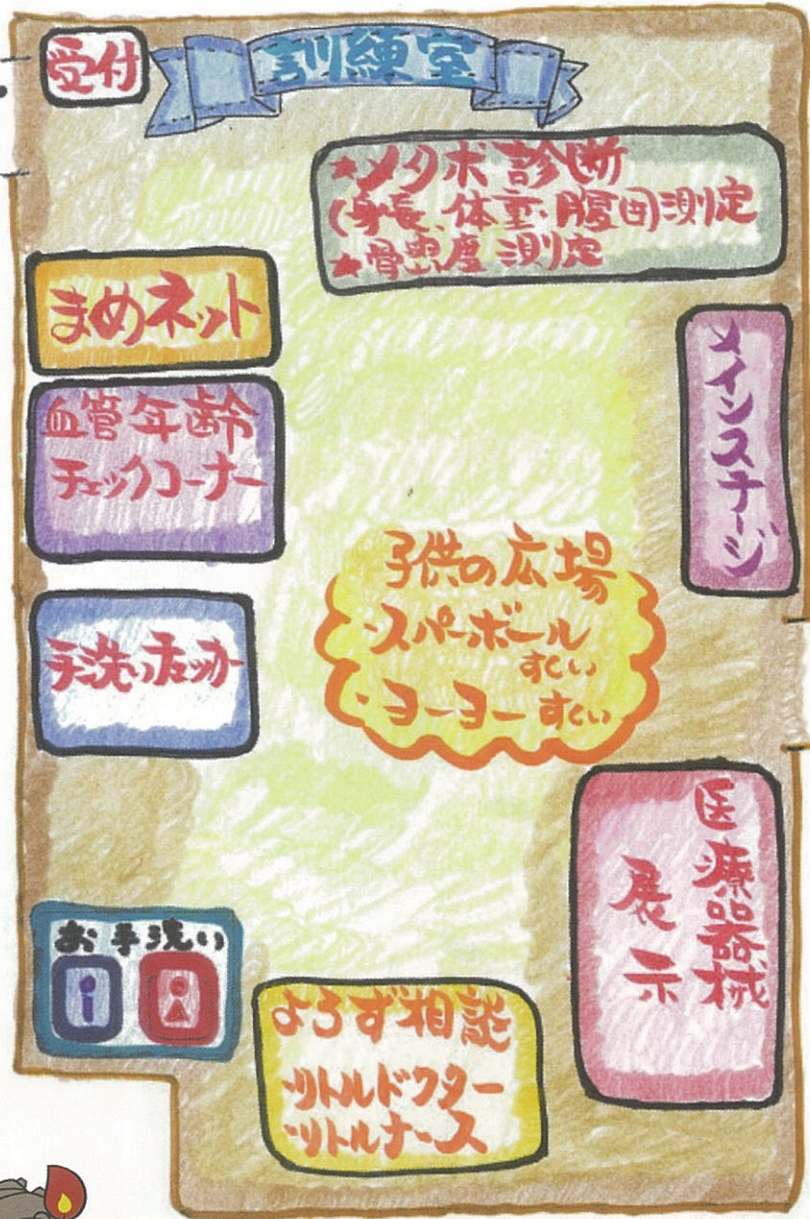 受付
訓練室
★メタボ診断
(身長、体重、腹囲)測定
★骨密度測定
まめネット
血管年齢
チェックコーナー
メインステージ
子供の広場
・スパーボール
すくい
・ヨーヨーすくい
手洗いチェッカー
医療器械
展示
お手洗い
よろず相談
・リトルドクター
・リトルナース